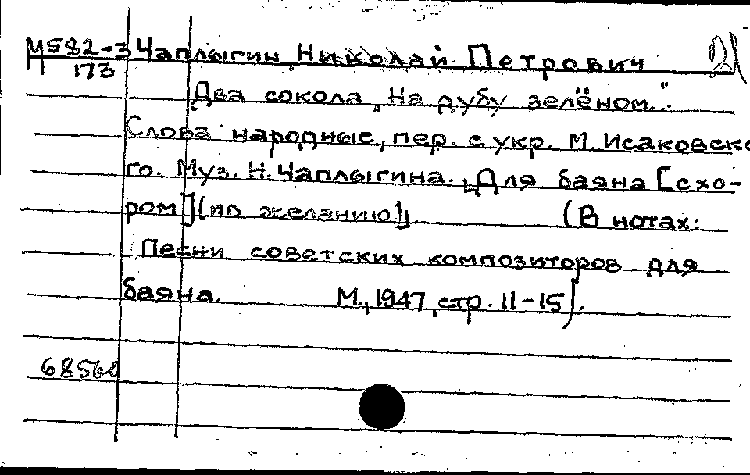 М582-3 Чаплыгин Николай Петрович
173
Два сокола „На дубу зелёном..."
Слова народные, пер. с укр. М. Исаковско
го. Муз. Н. Чаплыгина. [Для баяна [с хо-
ром] (по желанию)] (В нотах:
Песни советских композиторов для
баяна. М., 1947, стр. 11-15).